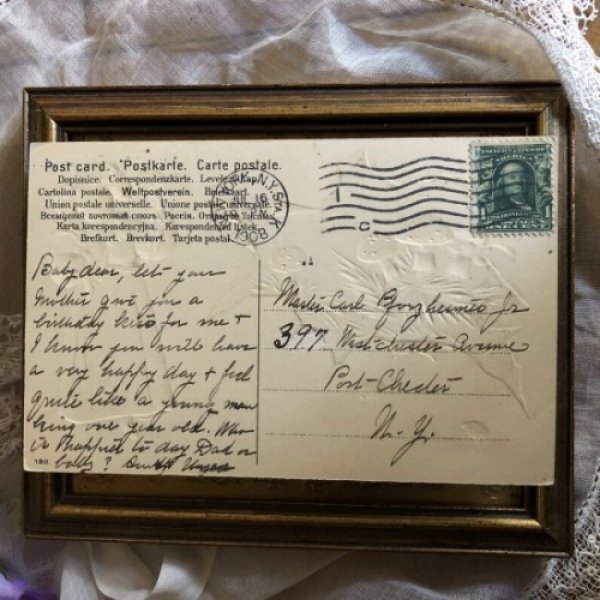 Post card. Postkarte. Carte postale.
Dopisnice. Correspondenzkarte. Levelező-Lap.
Cartolina postale. Weltpostverein. Briefkaart.
Union postale universelle. Unione postale universale.
Всемірный почтовый союзъ. Россія. Открытое
Karta korespondencyjna. Korespondenční listek.
Brefkort. Brevkort. Tarjeta postal.
N.Y. STA.
1908
1
Baby dear, let your
Mother give you a
birthday kiss for me +
I know you will have
a very happy day + feel
quite like a young man
being one year old. Who
is happiest to day Dad or
baby?
180
Master Carl Jr
397 Westchester Avenue
Port-Chester
N. Y.